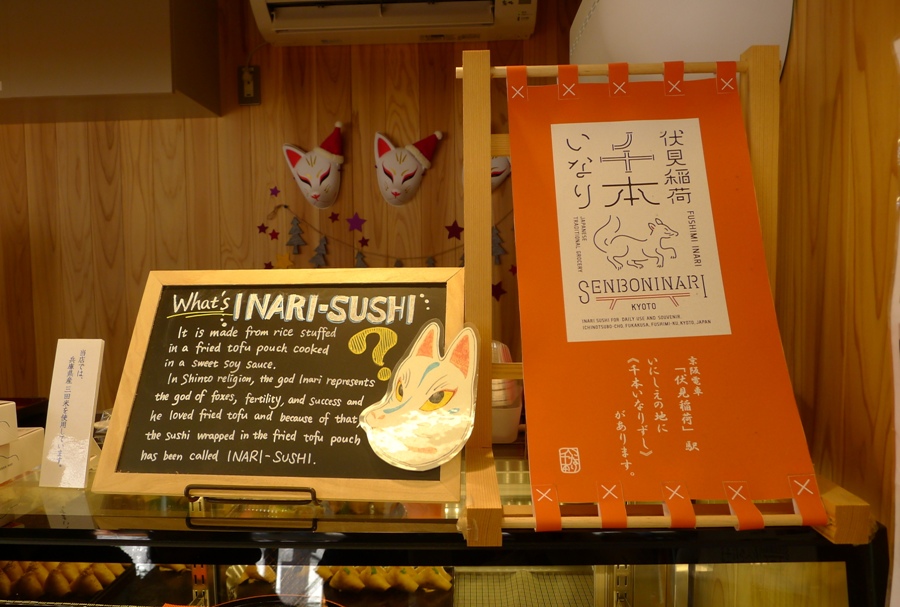 当店では、
兵庫県産三田米を使用しています。
What's INARI-SUSHI
?
It is made from rice stuffed
in a fried tofu pouch cooked
in a sweet soy sauce.
In Shinto religion, the god Inari represents
the god of foxes, fertility, and success and
he loved fried tofu and because of that
the sushi wrapped in the fried tofu pouch
has been called INARI-SUSHI.
伏見稲荷
千本
いなり
FUSHIMI INARI
JAPANESE
TRADITIONAL GROCERY
SENBONINARI
KYOTO
INARI SUSHI FOR DAILY USE AND SOUVENIR.
ICHINOTSUBO-CHO, FUKAKUSA, FUSHIMI-KU, KYOTO, JAPAN
京阪電車
「伏見稲荷」駅
いにしえの地に
《千本いなりずし》
があります。